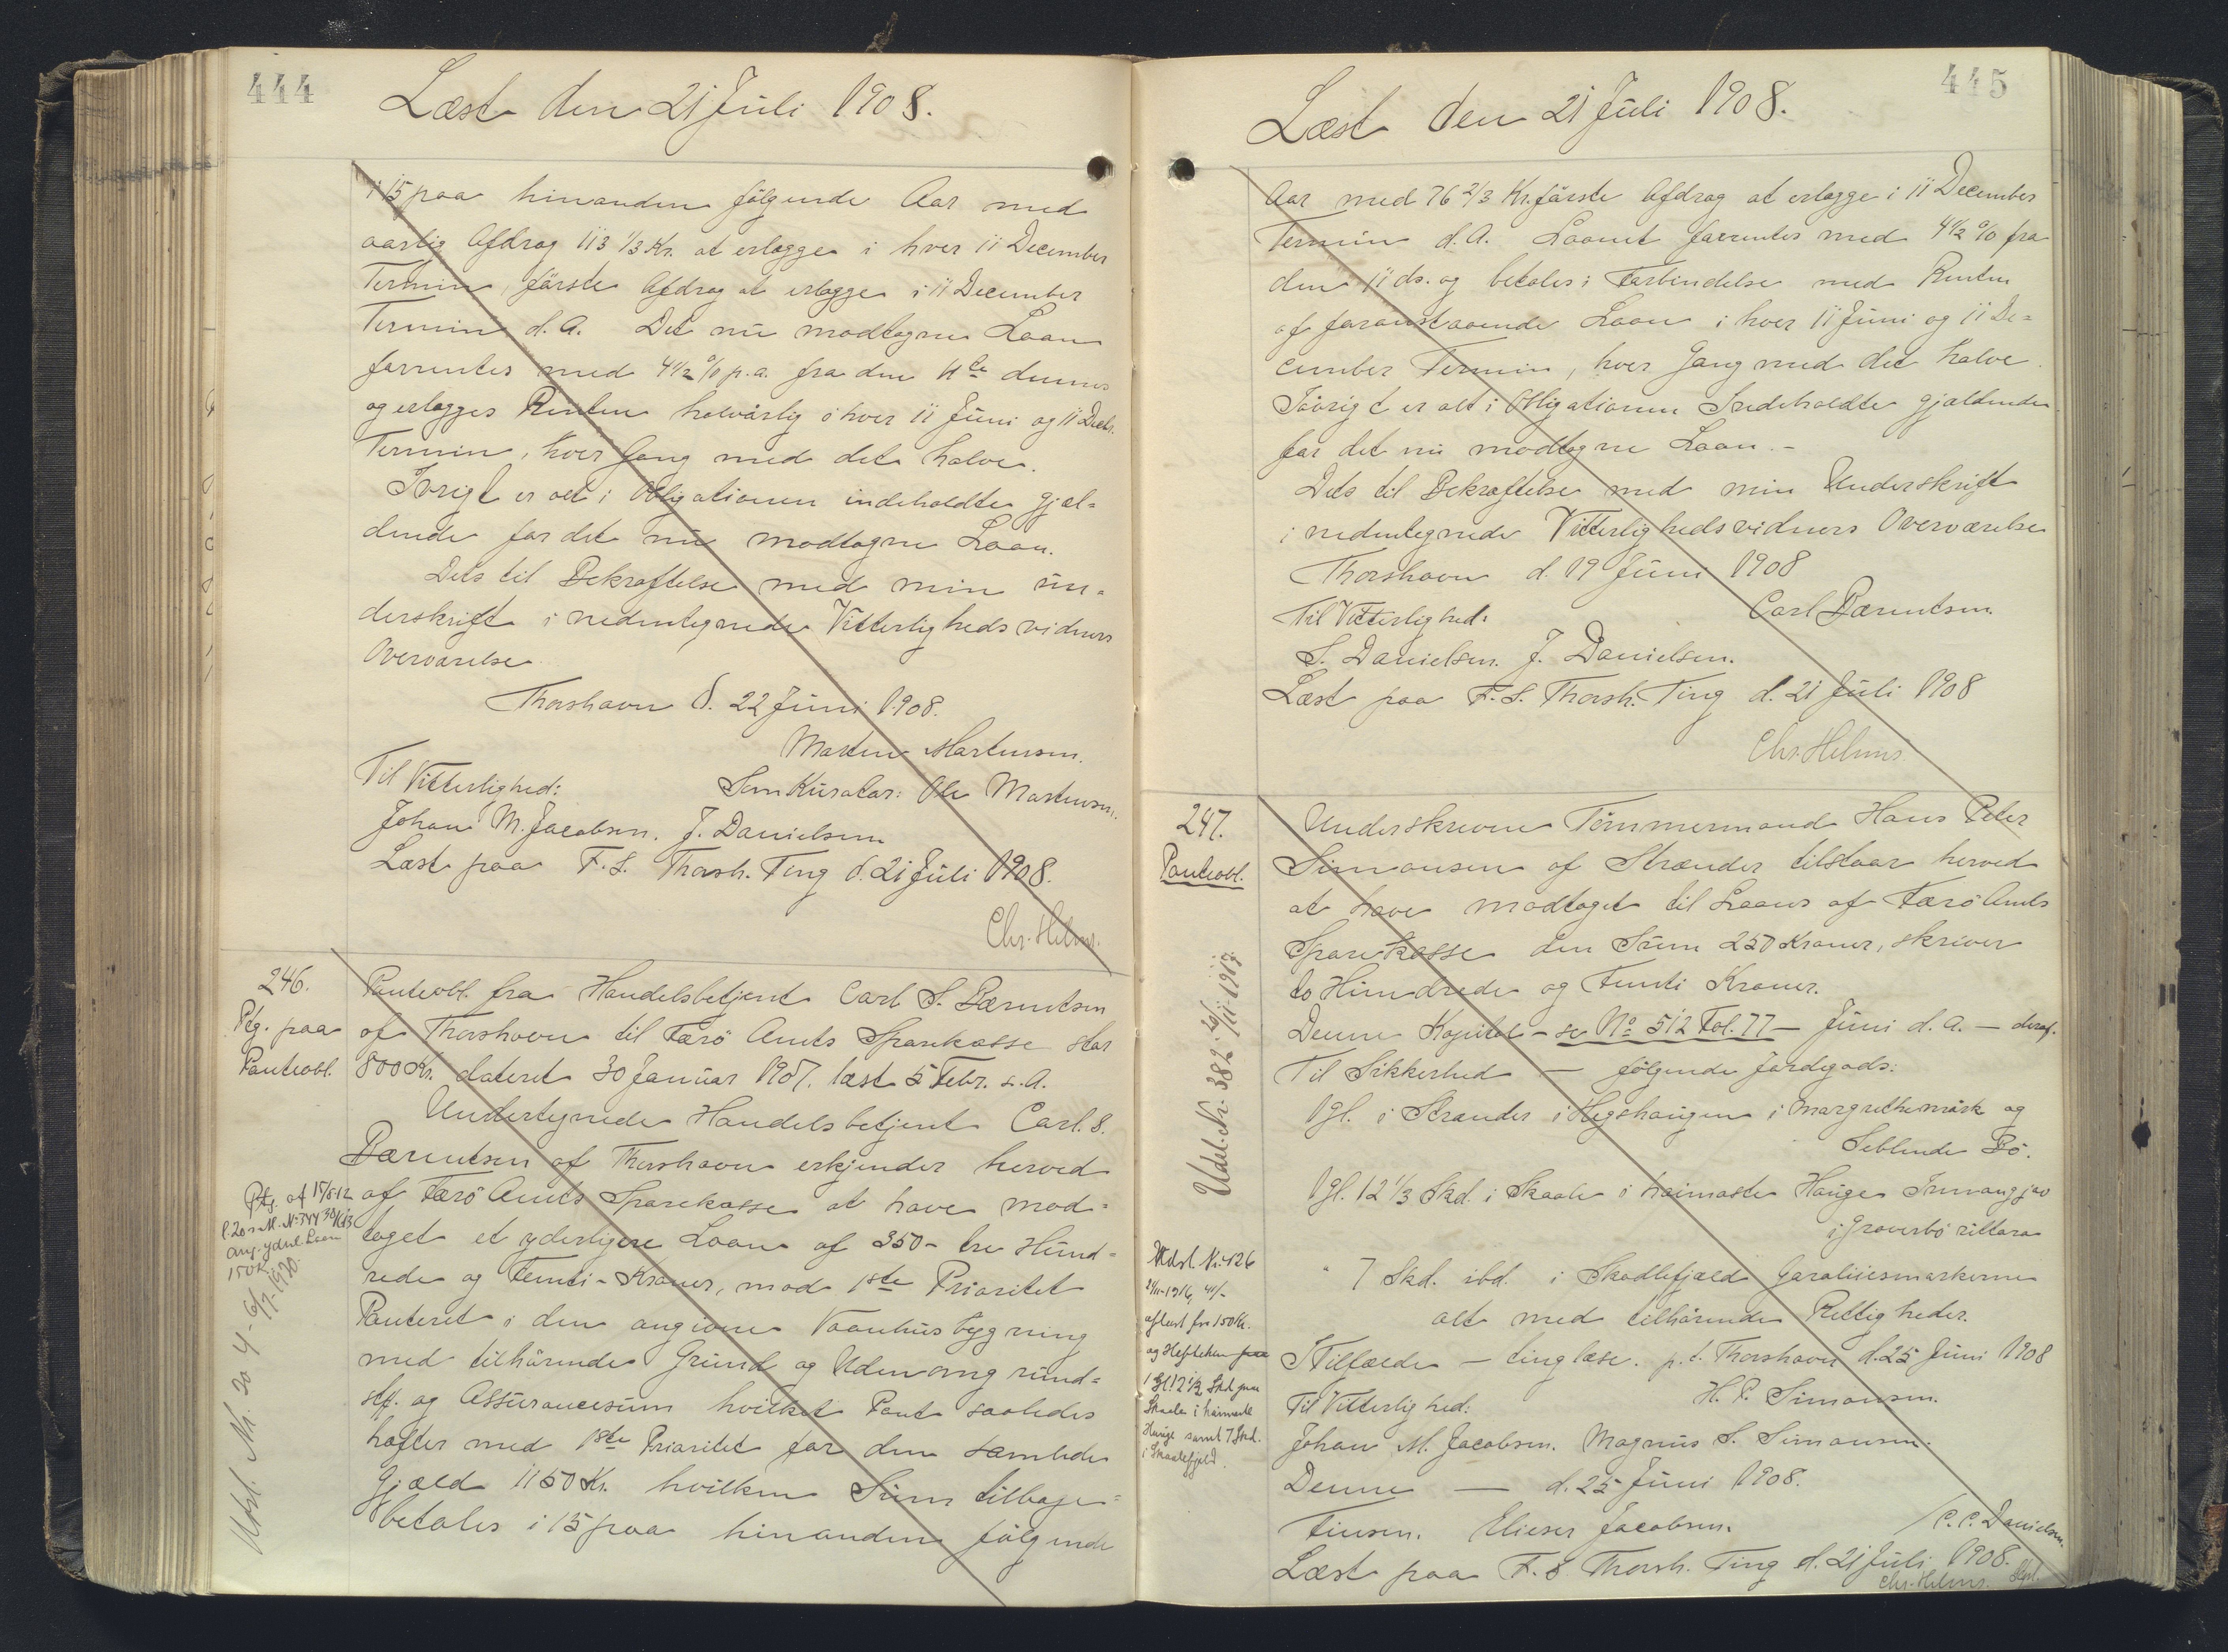 444
Læst den 21 Juli 1908.
i 15 paa hinanden følgende Aar med
aarlig Afdrag 113 1/3 Kr. at erlægge i hver 11 December
Termin, første Afdrag at erlægge i 11 December
Termin d. A. Det nu modtagne Laan
forrentes med 4 1/2 % p.a. fra den 11te dennes
og erlægges Renten halvårlig i hver 11 Juni og 11 Decbr.
Termin, hver Gang med det halve.
Ivrigt er alt i Obligationen indeholdte gjæl-
dende for det nu modtagne Laan.
Dets til Bekræftelse med min un-
derskrift i nedentegnede Vitterligheds vidners
Overværelse
Thorshavn d. 22 Juni 1908.
Morten Mortensen.
Til Vitterlighed: Som Kurator: Ole Mortensen.
Johan M. Jacobsen. J. Danielsen
Læst paa F. S. Thorsh. Ting d. 21 Juli 1908.
Chr. Helms.
246.
Ptg. paa
Panteobl.
Panteobl. fra Handelsbetjent Carl S. Bærentsen
of Thorshavn til Færö Amts Sparekasse stor
800 Kr. dateret 30 Januar 1907. læst 5 Febr. s. A.
Undertegnede Handelsbetjent Carl. S.
Bærentsen of Thorshavn erkjender herved
af Færö Amts Sparekasse at have mod-
taget et yderligere Laan af 350 - tre Hund-
rede og Femti - Kroner, mod 1ste Prioritet
Panteret i den angivne Vaanhusbygning
med tilhørende Grund og Udenomg rund-
stf. og Assurancesum hvilket Pant saaledes
hæfter med 1ste Prioritet for den samlede
Gjæld 1150 Kr. hvilken Sum tilbage-
betales i 15 paa hinanden følgende
Ptg. af 15/5 12
ang. ydrl. Laan
150 Kr.
Udsl. Nr. 20 4 - 6/7-1920.
445
Læst den 21 Juli 1908.
Aar med 76 2/3 Kr. første Afdrag at erlægge i 11 December
Termin d. A. Laanet forrentes med 4 1/2 % fra
den 11 ds. og betales i Forbindelse med Renten
af foranstaaende Laan i hver 11 Juni og 11 De-
cember Termin, hver Gang med det halve
Iövrigt er alt i Obligationen Indeholdte gjældende
for det nu modtagne Laan. -
Dets til Bekræftelse med min Underskrift
i nedentegnede Vitterlighedsvidners Overværelse
Thorshavn d. 19 Juni 1908
Til Vitterlighed: Carl Bærentsen.
S. Danielsen. J. Danielsen.
Læst paa F. S. Thorsh. Ting d. 21 Juli 1908
Chr. Helms.
247.
Panteobl.
Underskrevne Tömmermand Hans Peter
Simonsen af Strænder tilstaar herved
at have modtaget til Laans af Færö Amts
Sparekasse den Sum 250 Kroner, skriver
to Hundrede og Femti Kroner.
Denne Kapital - se No 512 Fol. 77 - Juni d. A. - deraf.
Til Sikkerhed - følgende Jordegods:
1 gl. i Strander i Høgshaugen i Margrethemärk og
Seblende Bö.
1 gl. 12 1/3 Skd. i Skaale i haimaste Hauge Innangjav
i Groverbö rillara
" 7 Skd. ibd. i Skaalefjæld Garaliiesmarkerne
alt med tilhörende Rettigheder.
I Tilfælde - tinglæse. p. t. Thorshavn d. 25 Juni 1908
Til Vitterlighed: H. P. Simonsen.
Johan M. Jacobsen. Magnus S. Simonsen.
Denne - d. 25 Juni 1908.
Finsen. Elieser Jacobsen. / P. P. Danielsen.
Læst paa F. S. Thorsh. Ting d. 21 Juli 1908.
Chr. Helms.
Udsl. Nr. 382 - 26/11-1917.
Udsl. Nr. 126
24/11-1916,
aflæst for 150 Kr.
og Heftelsen paa
1 Gl. 12 1/2 Skd paa
Skaale i haimaste
Hauge samt 7 Skd.
i Skaalefjeld.